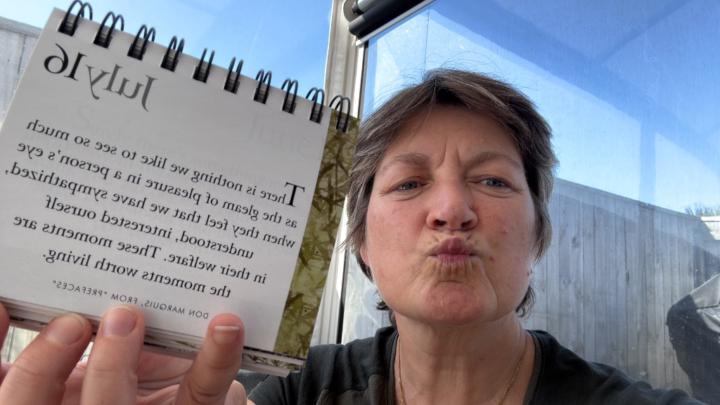 July 16
There is nothing we like to see so much
as the gleam of pleasure in a person's eye
when they feel that we have sympathized,
understood, interested ourself
in their welfare. These moments are
the moments worth living.
DON MARQUIS, FROM "PREFACES"